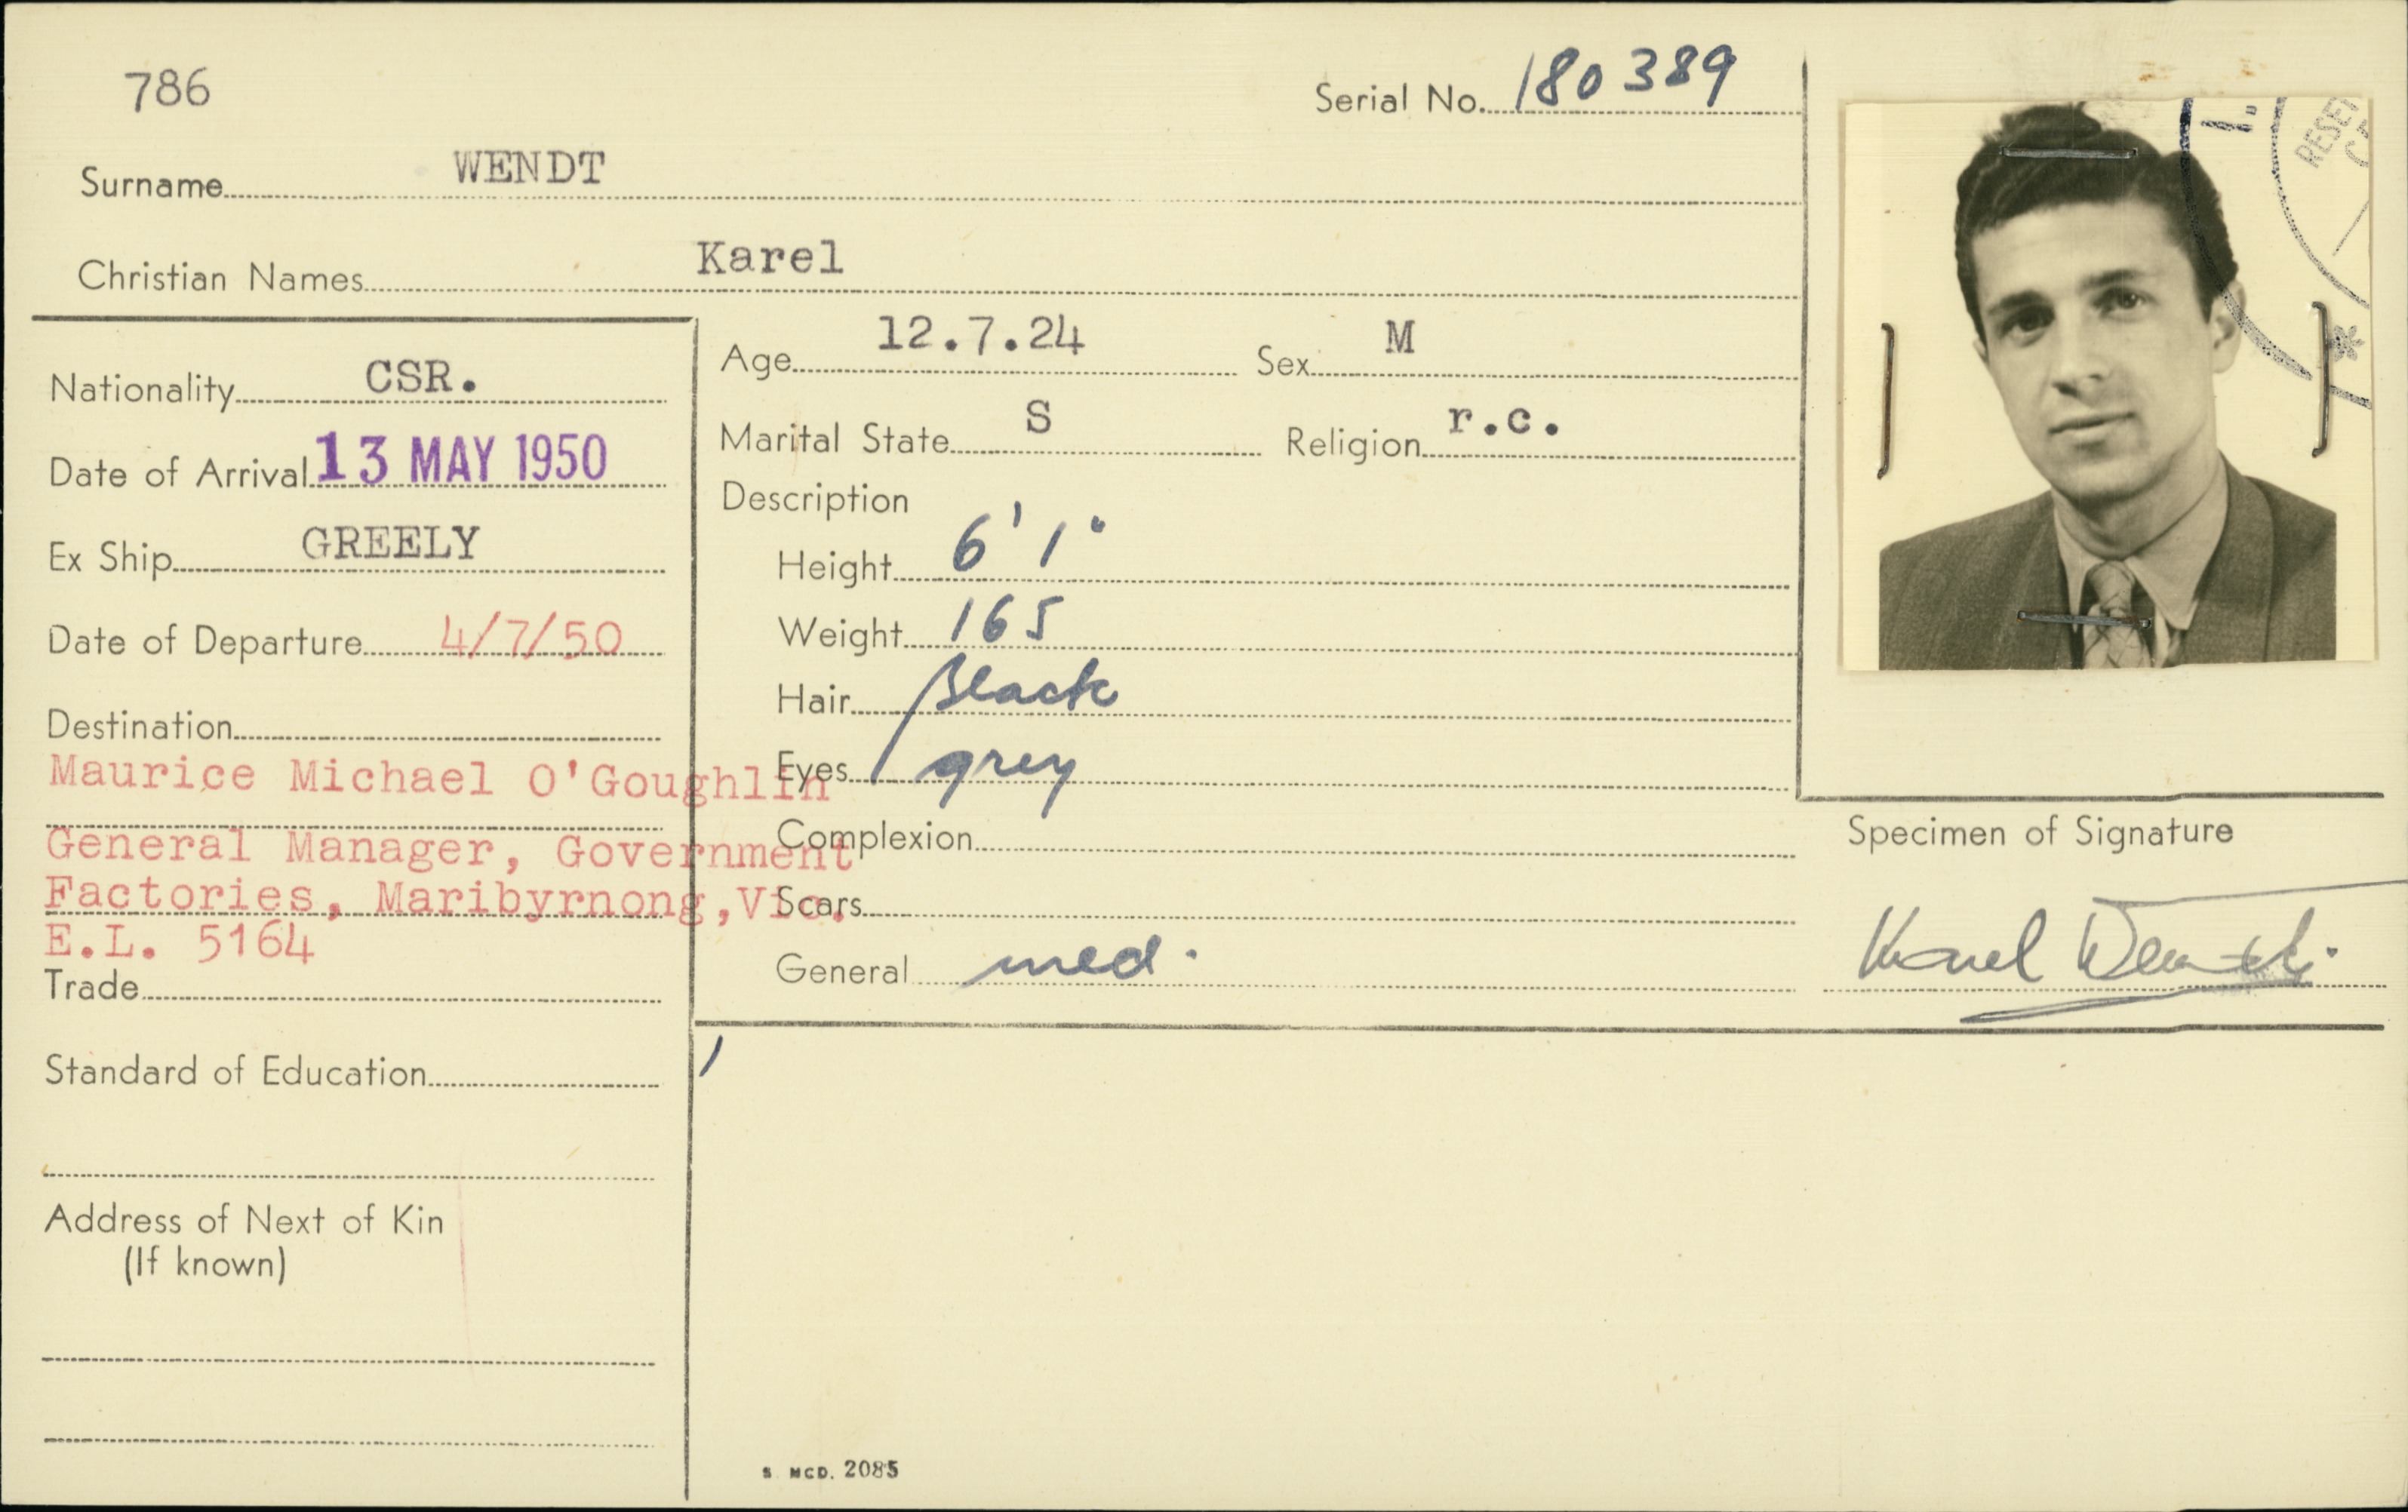 786
Serial No. 180389
Surname WENDT
Christian Names Karel
Nationality CSR.
Date of Arrival 13 MAY 1950
Ex Ship GREELY
Date of Departure 4/7/50
Destination
Maurice Michael O'Goughlin
General Manager, Government
Factories, Maribyrnong, Vic.
E.L. 5164
Trade
Standard of Education
Address of Next of Kin
(If known)
Age 12.7.24 Sex M
Marital State S Religion r.c.
Description
Height 6' 1"
Weight 165
Hair Black
Eyes grey
Complexion
Scars
General med.
Specimen of Signature
Karel Wendt.
S MCD. 2085